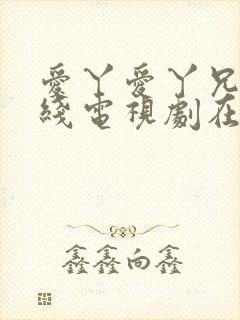 愛丫愛丫兄
綫電視劇在
鑫鑫向鑫